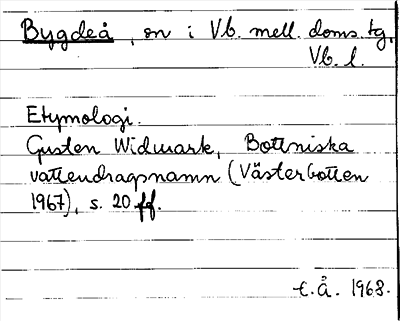 Bygdeå, on i Vb. mell. doms. tg,
Vb. l.
Etymologi.
Gusten Widmark, Bottniska
vattendragsnamn (Västerbotten
1967), s. 20 ff.
t.Å. 1968.